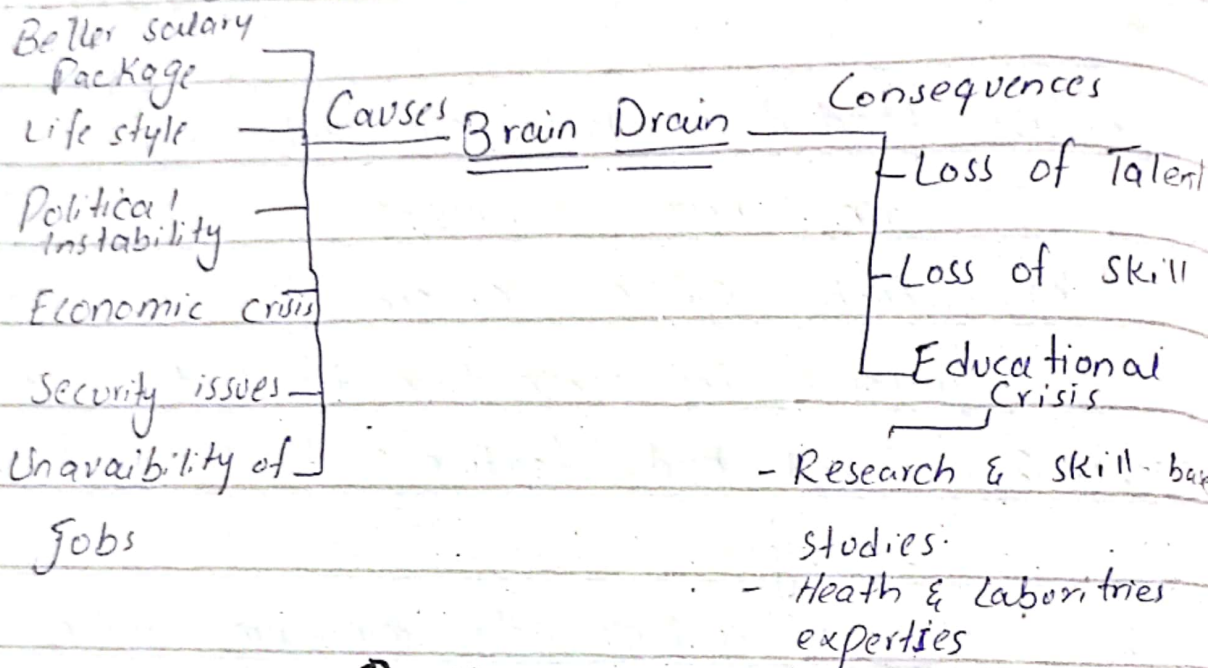 Better salary
Package
Life style
Political
instability
Economic crisis
Security issues
Unavaibility of
Jobs
Causes
Brain Drain
Consequences
Loss of Talent
Loss of Skill
Educational
Crisis
- Research & skill
studies.
- Heath & Laboritries
experties